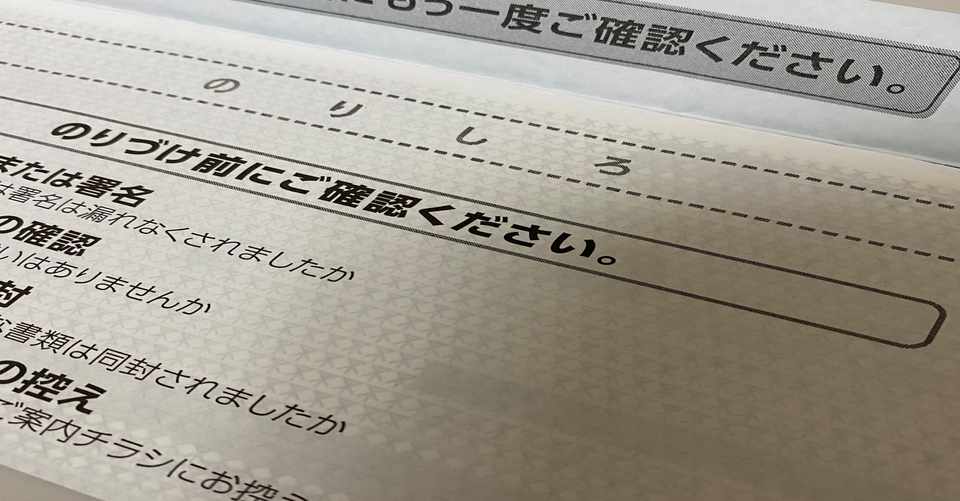 もう一度ご確認ください。
のりしろ
のりづけ前にご確認ください。
または署名
は署名は漏れなくされましたか
の確認
いはありませんか
封
な書類は同封されましたか
の控え
ご案内チラシにお控え